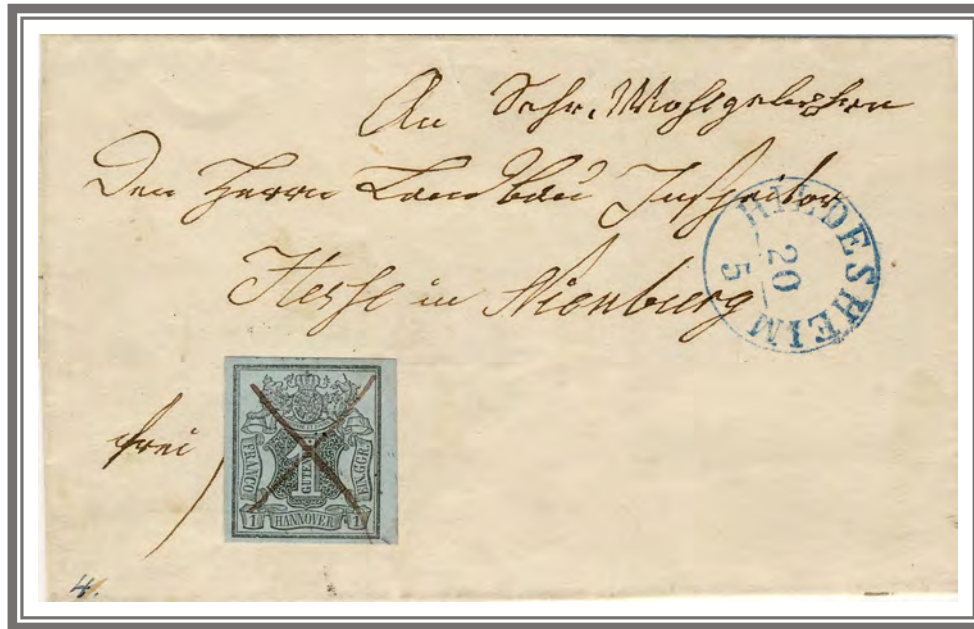 An Sehr. Wohlgeboren
Den Herrn Landbau Inspector
Hesse in Nienburg
HILDESHEIM
20
5
frei
1
GUTENGR.
FRANCO
EIN.GGR.
1 HANNOVER 1
4/.